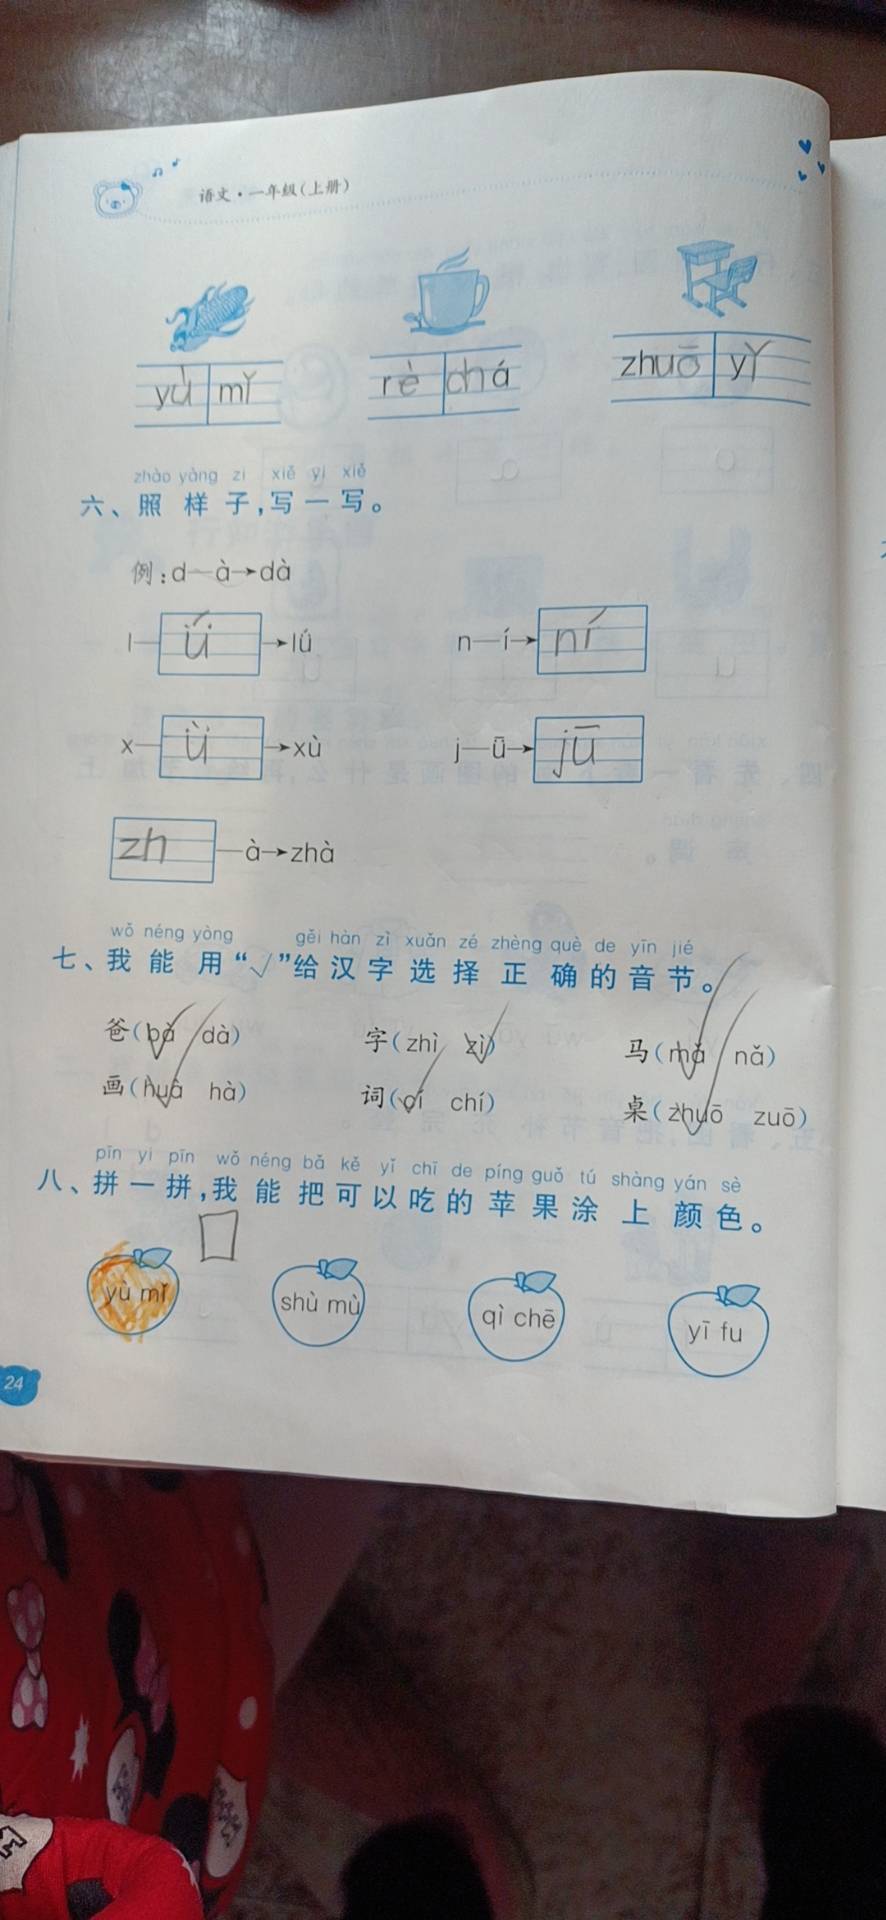 语文·一年级(上册)
yù mǐ rè chá zhuō yǐ
zhào yàng zi xiě yi xiě
六、照样子,写一写。
例:d—à→dà
l—ǘ→lǘ n—í→ní
x—ǜ→xù j—ǖ→jū
zh—à→zhà
wǒ néng yòng gěi hàn zì xuǎn zé zhèng què de yīn jié
七、我能用“√”给汉字选择正确的音节。
爸(bà dà) 字(zhì zì) 马(mǎ nǎ)
画(huà hà) 词(cí chí) 桌(zhuō zuō)
pīn yi pīn wǒ néng bǎ kě yǐ chī de píng guǒ tú shàng yán sè
八、拼一拼,我能把可以吃的苹果涂上颜色。
yù mǐ shù mù qì chē yī fu
24